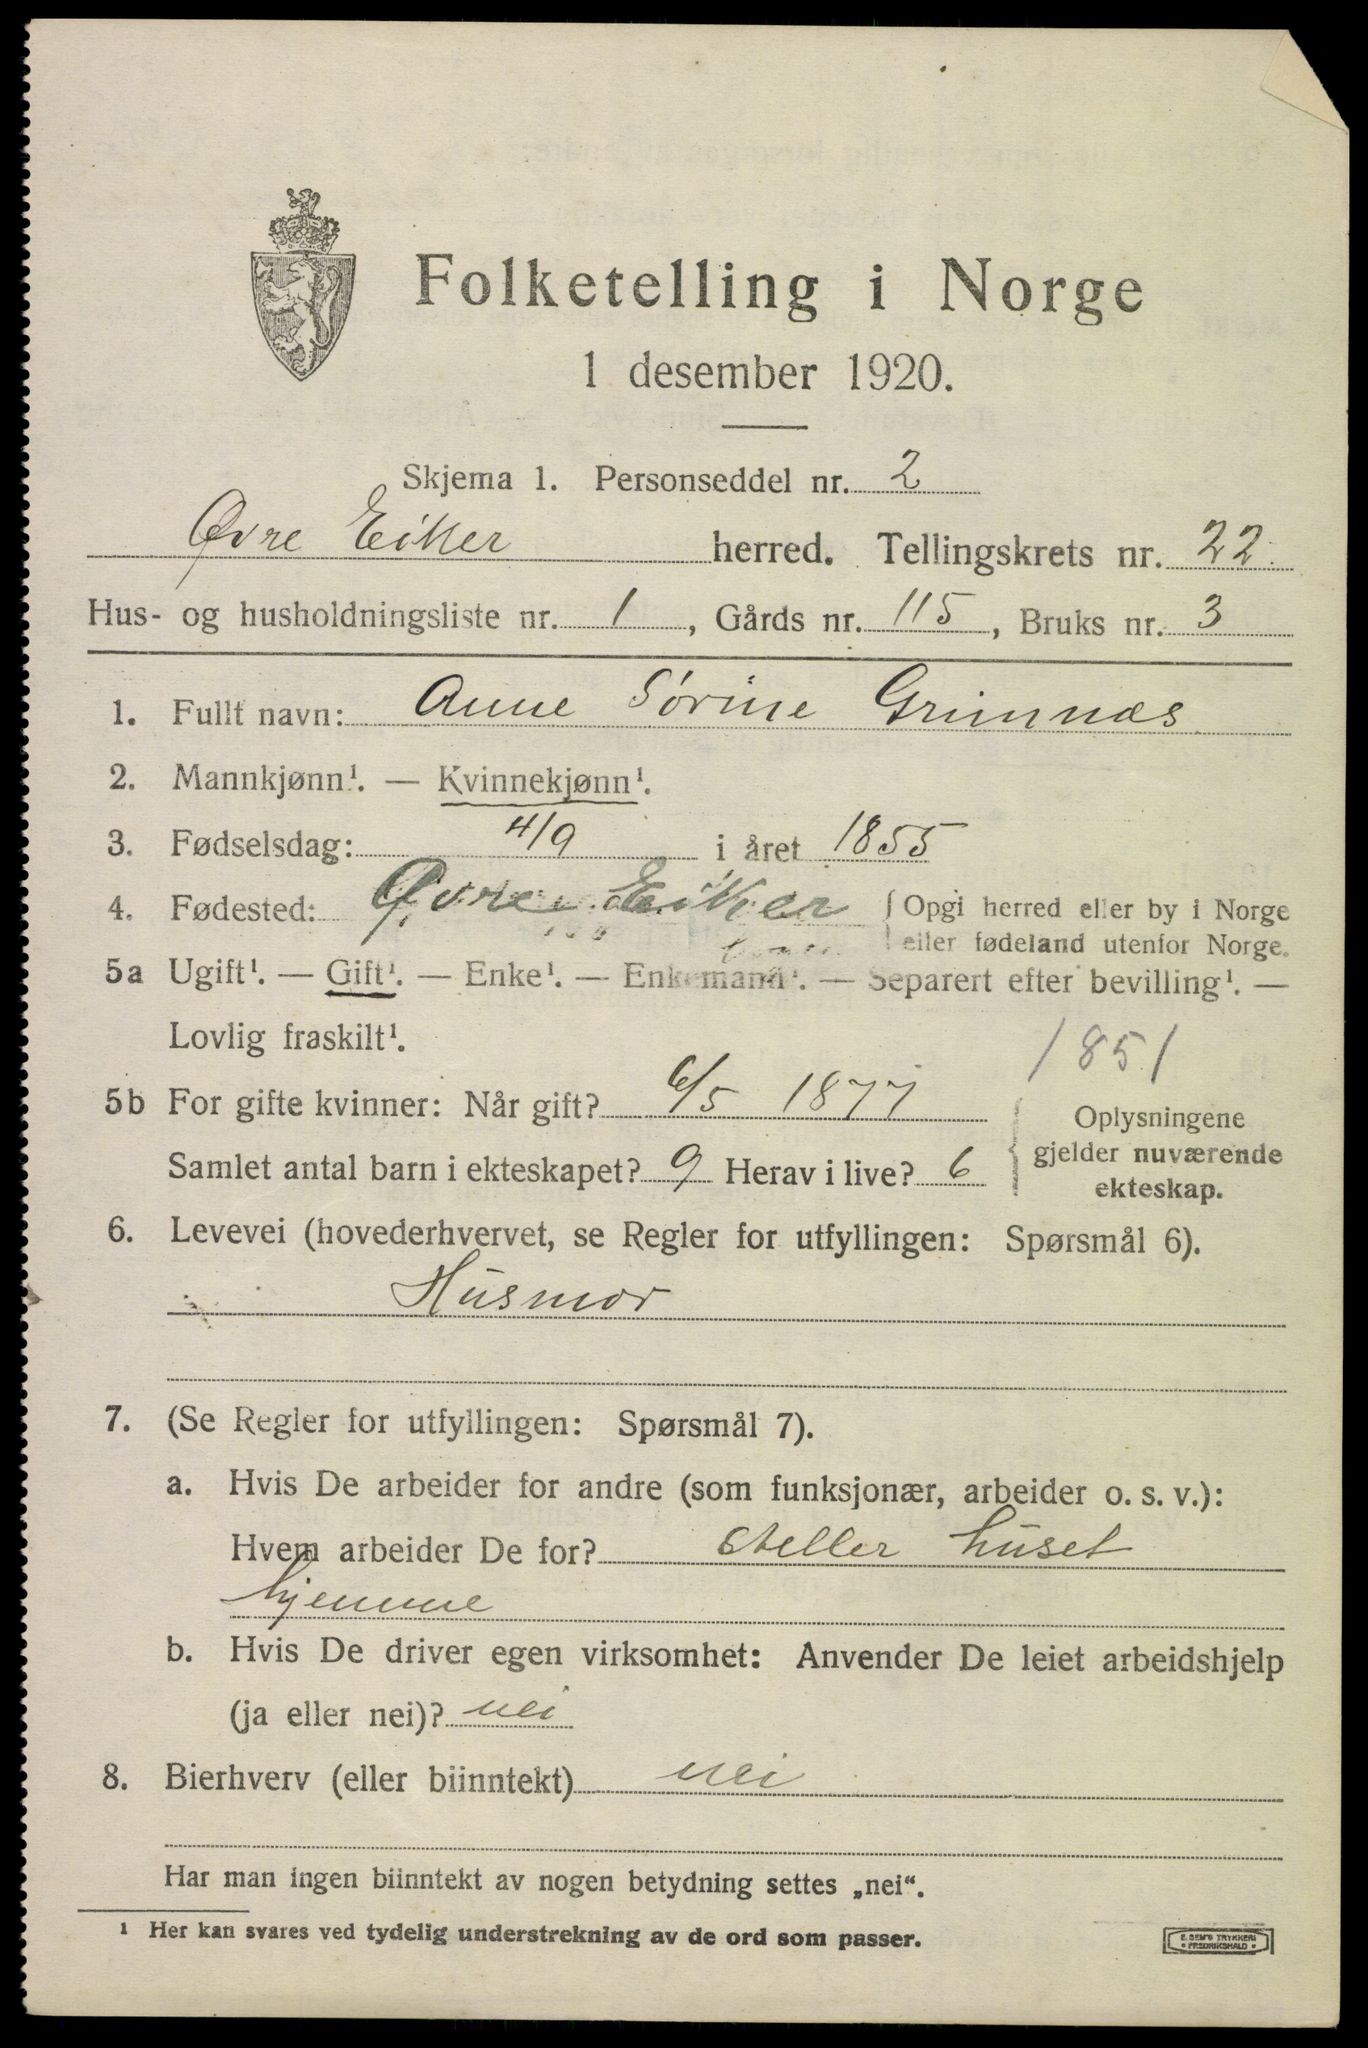 Folketelling i Norge
1 desember 1920.
Skjema 1. Personseddel nr. 2
Øvre Eiker herred. Tellingskrets nr. 22
Hus- og husholdningsliste nr. 1, Gårds nr. 115, Bruks nr. 3
1. Fullt navn: Anne Sørine Grimnæs
2. Mannkjønn¹. — Kvinnekjønn¹.
3. Fødselsdag: 4/9 i året 1855
4. Fødested: Øvre Eiker { Opgi herred eller by i Norge
eller fødeland utenfor Norge.
5a Ugift¹. — Gift¹. — Enke¹. — Enkemann¹. — Separert efter bevilling¹. —
Lovlig fraskilt¹.
1851
5b For gifte kvinner: Når gift? 6/5 1877
Samlet antal barn i ekteskapet? 9 Herav i live? 6
{ Oplysningene
gjelder nuværende
ekteskap.
6. Levevei (hovederhvervet, se Regler for utfyllingen: Spørsmål 6).
Husmor
7. (Se Regler for utfyllingen: Spørsmål 7).
a. Hvis De arbeider for andre (som funksjonær, arbeider o. s. v.):
Hvem arbeider De for? steller huset
hjemme
b. Hvis De driver egen virksomhet: Anvender De leiet arbeidshjelp
(ja eller nei)? nei
8. Bierhverv (eller biinntekt) nei
Har man ingen biinntekt av nogen betydning settes „nei“.
¹ Her kan svares ved tydelig understrekning av de ord som passer.
E. SEM'S TRYKKERI
• FREDRIKSHALD •